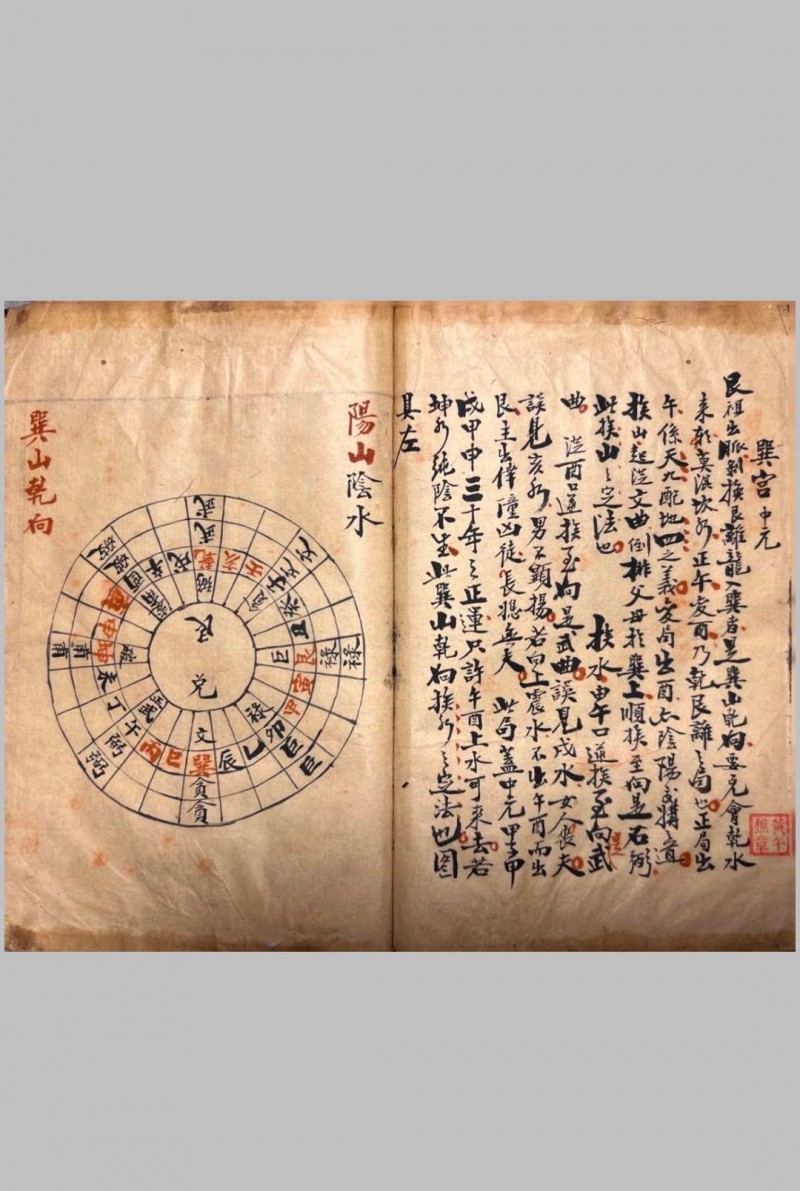 巽宮中元
艮祖出脈剝換艮離龍入巽者是巽山乾向要兌會乾水
來朝莫混坎水正午亥酉乃乾艮離之局也正局出
午係天九配地四之義變局出酉亦陰陽交媾之道
挨山起從文曲倒排父母於巽上順挨至向是右弼
此挨山之定法也 挨水由午口逆挨至向武
曲 從酉口逆挨至向是武曲誤見戌水女人喪夫
誤見亥水男不顯揚若向上震水不出午酉而出
艮主出偉僮凶徒長怨無夫 此局蓋中元甲子甲
戌甲申三十年之正運只許午酉上水可來去若
坤水純陰不生此巽山乾向挨水之定法也圖
具左
陽山陰水
巽山乾向
艮
兌
武
武
破
乾
亥
壬
子
癸
丑
艮
寅
甲
卯
乙
辰
巽
巳
丙
午
丁
未
坤
申
酉
辛
戌
文
貪
貪
祿
祿
巨
巨
巨
弼
弼
武
破